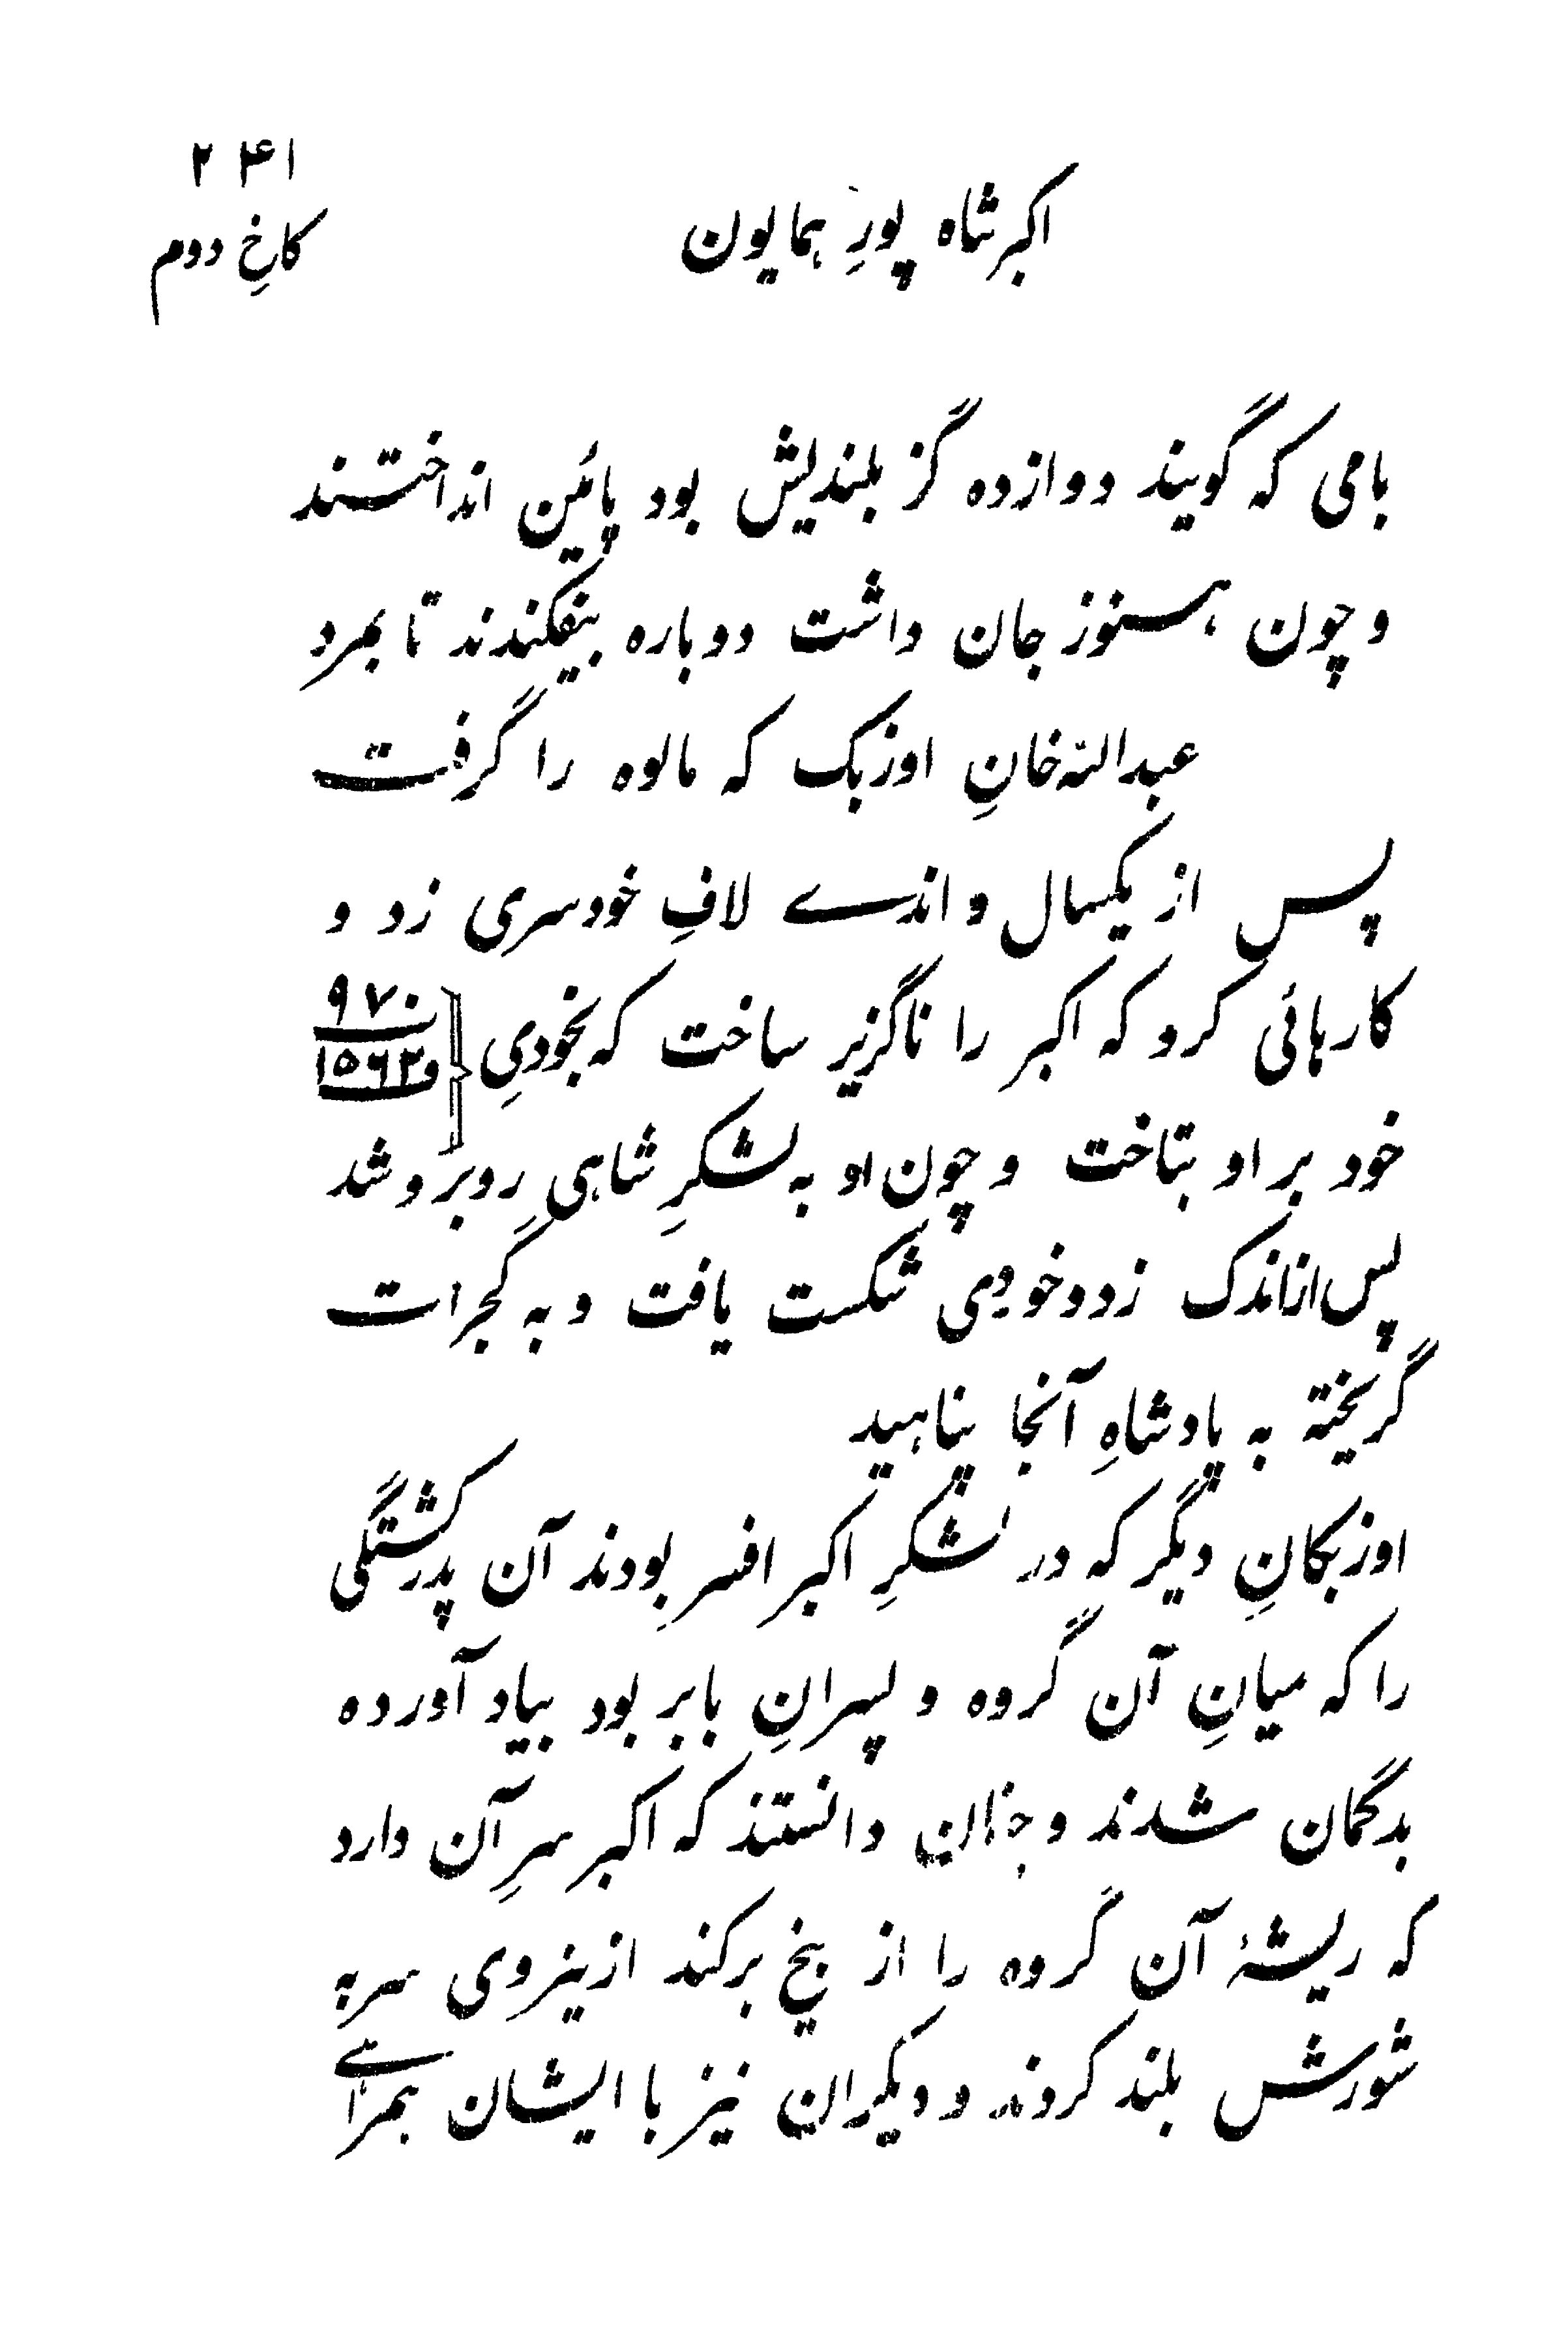 ۲۴۱
کاخِ دوم
اکبر شاہ پورِ ہمایون
بامی کہ گویند دوازدہ گز بلندیش بود پائین انداختند
و چون ہنوز جان داشت دوبارہ بیفکندند تا بمرد
عبداللہ خانِ اوزبک کہ مالوہ را گرفت
پس از یکسال و اندے لافِ خودسری زد و
کارہائی کرد کہ اکبر را ناگزیر ساخت کہ بخودیِ
۹۷۰
۱۵۶۲
خود بر او بتاخت و چون او بہ لشکرِ شاہی روبرو شد
پس از اندک زد و خوردی شکست یافت و بہ گجرات
گریختہ بہ پادشاہِ آنجا پناہید
اوزبکانِ دیگر کہ در لشکرِ اکبر افسر بودند آن پدرکشتگی
را کہ میانِ آن گروہ و پسرانِ بابر بود بیاد آوردہ
بدگمان شدند و چنان دانستند کہ اکبر سرِ آن دارد
کہ ریشۂ آن گروہ را از بیخ برکند ازینروی سر بہ
شورش بلند کردند و دیگران نیز با ایشان ہمراہے